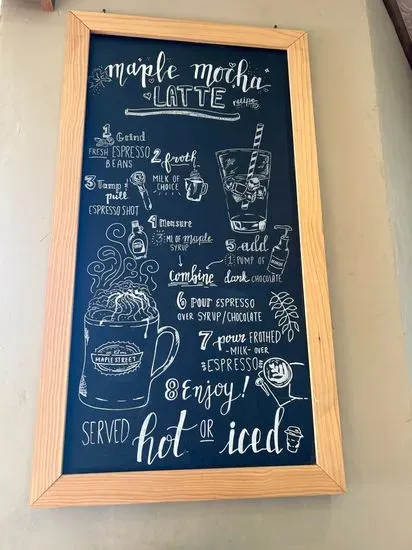 maple mocha
LATTE
recipe
1 Grind
FRESH ESPRESSO
BEANS
2 froth
MILK OF
CHOICE
3 Tamp &
pull
ESPRESSO SHOT
4 Measure
3 ML OF maple
SYRUP
5 add
1 PUMP OF
dark CHOCOLATE
combine
6 POUR ESPRESSO
OVER SYRUP/CHOCOLATE
7. pour FROTHED
-MILK- OVER
ESPRESSO
8 Enjoy!
MAPLE STREET
SERVED hot OR iced